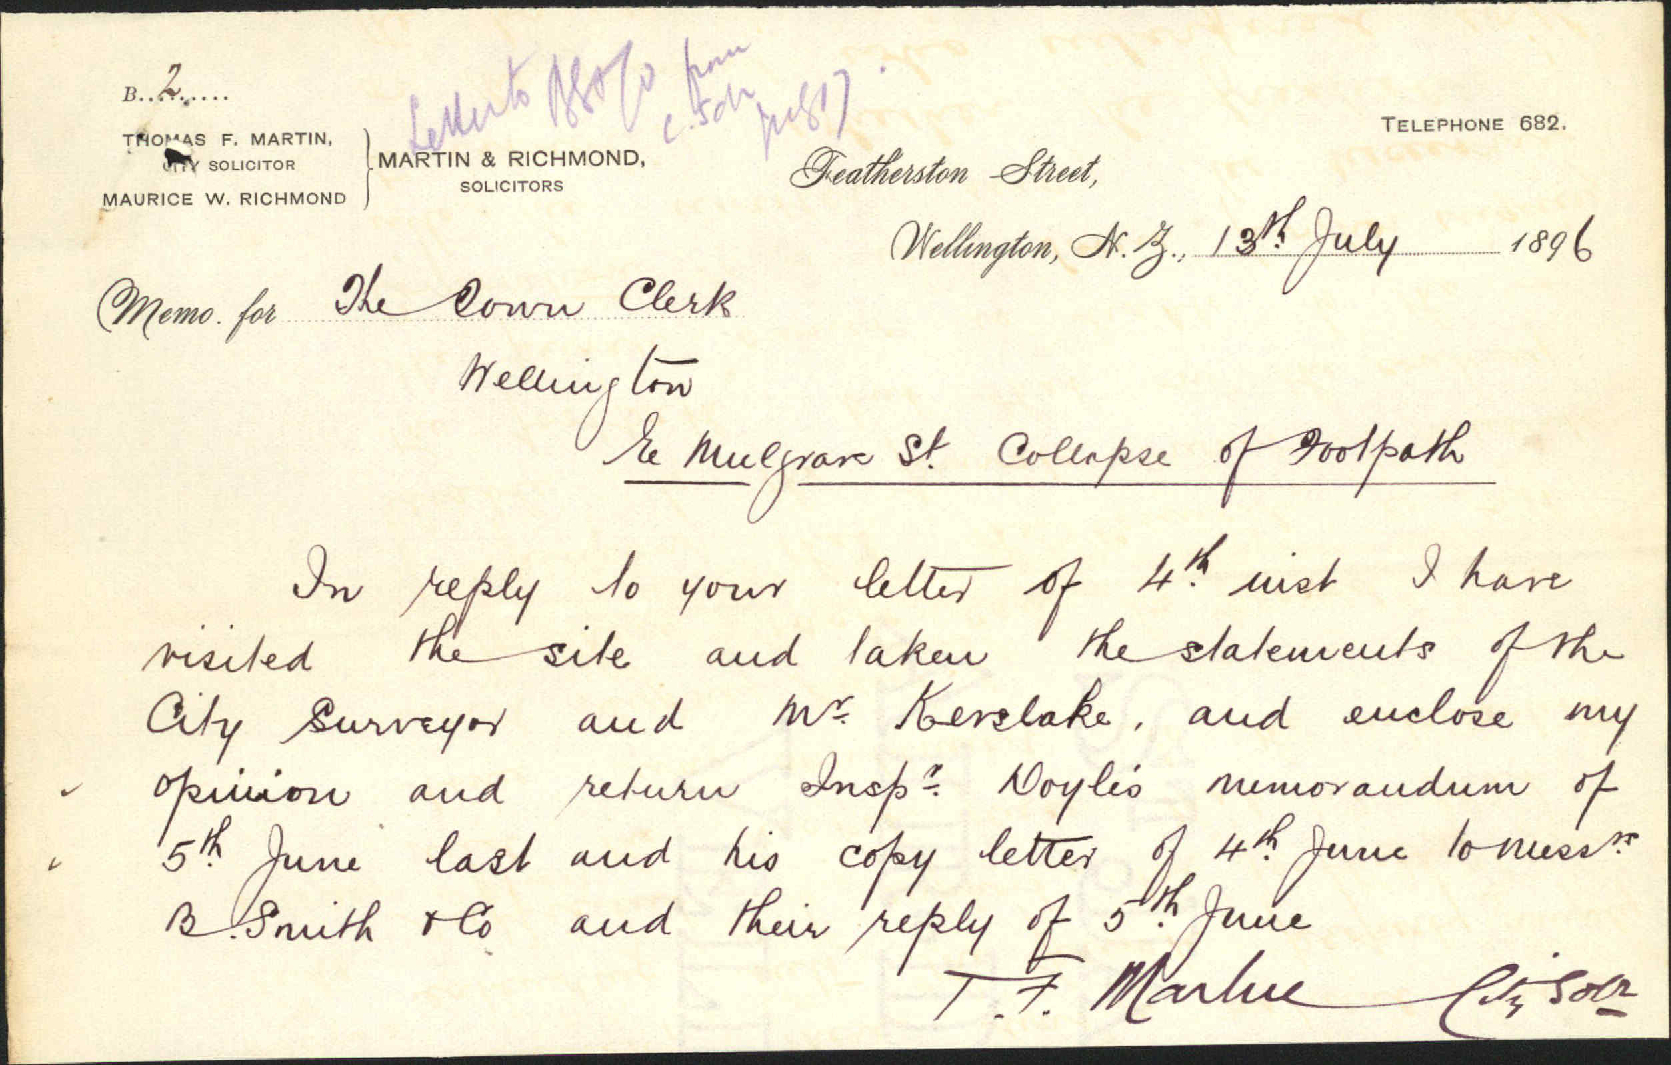 B..2......
THOMAS F. MARTIN,
CITY SOLICITOR
MAURICE W. RICHMOND
MARTIN & RICHMOND,
SOLICITORS
Letter to BS & Co from
C. Solr
July 17
TELEPHONE 682.
Featherston Street,
Wellington, N.Z., 13th July 1896
Memo. for The Town Clerk
Wellington
Re Mulgrave St. Collapse of Footpath
In reply to your letter of 4th inst I have
visited the site and taken the statements of the
City Surveyor and Mr. Kerslake, and enclose my
opinion and return Inspr. Doyle's memorandum of
5th June last and his copy letter of 4th June to Messrs
B. Smith & Co and their reply of 5th June
T. F. Martin City Solr